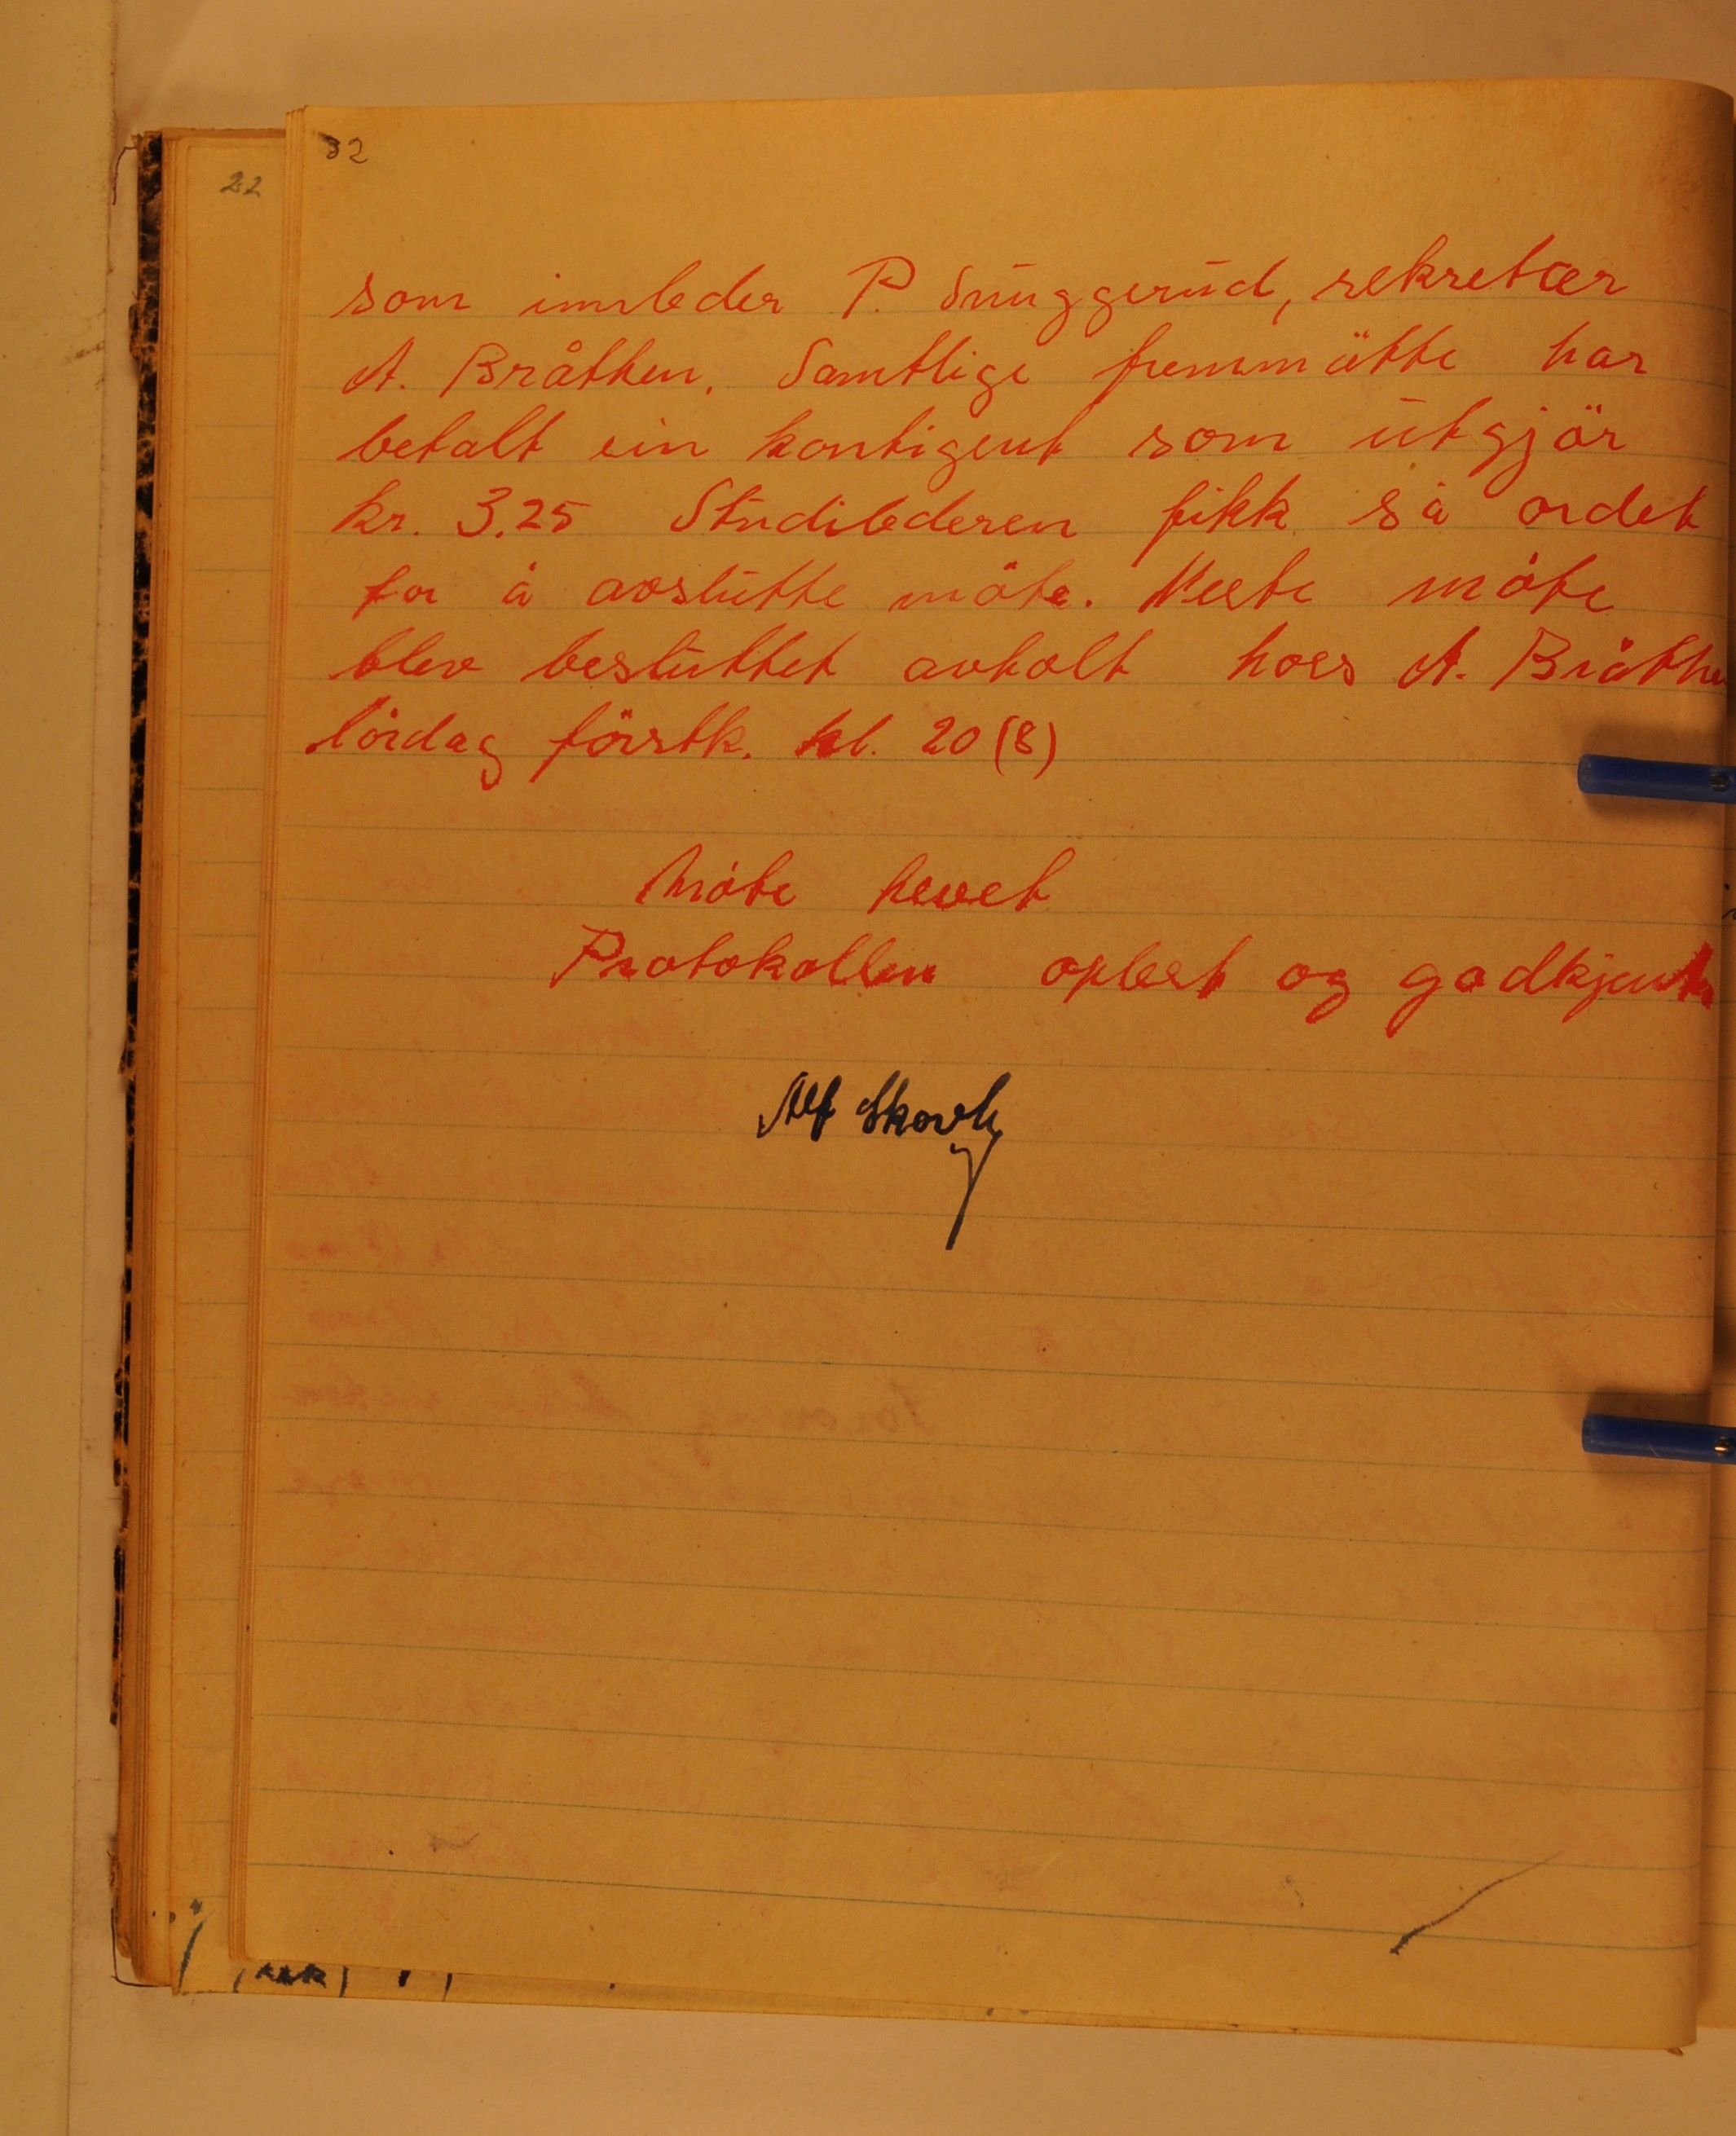 32
22
som innleder P. Snuggerud, sekretær
A. Bråthen. Samtlige fremmötte har
betalt ein kontigent som utgjör
kr. 3.25 Studilederen fikk så ordet
for å avslutte möte. Neste möte
blev besluttet avholt hoes A. Bråthe
lördag förstk. kl. 20 (8)
Möte hevet
Protokollen oplest og godkjent
Alf